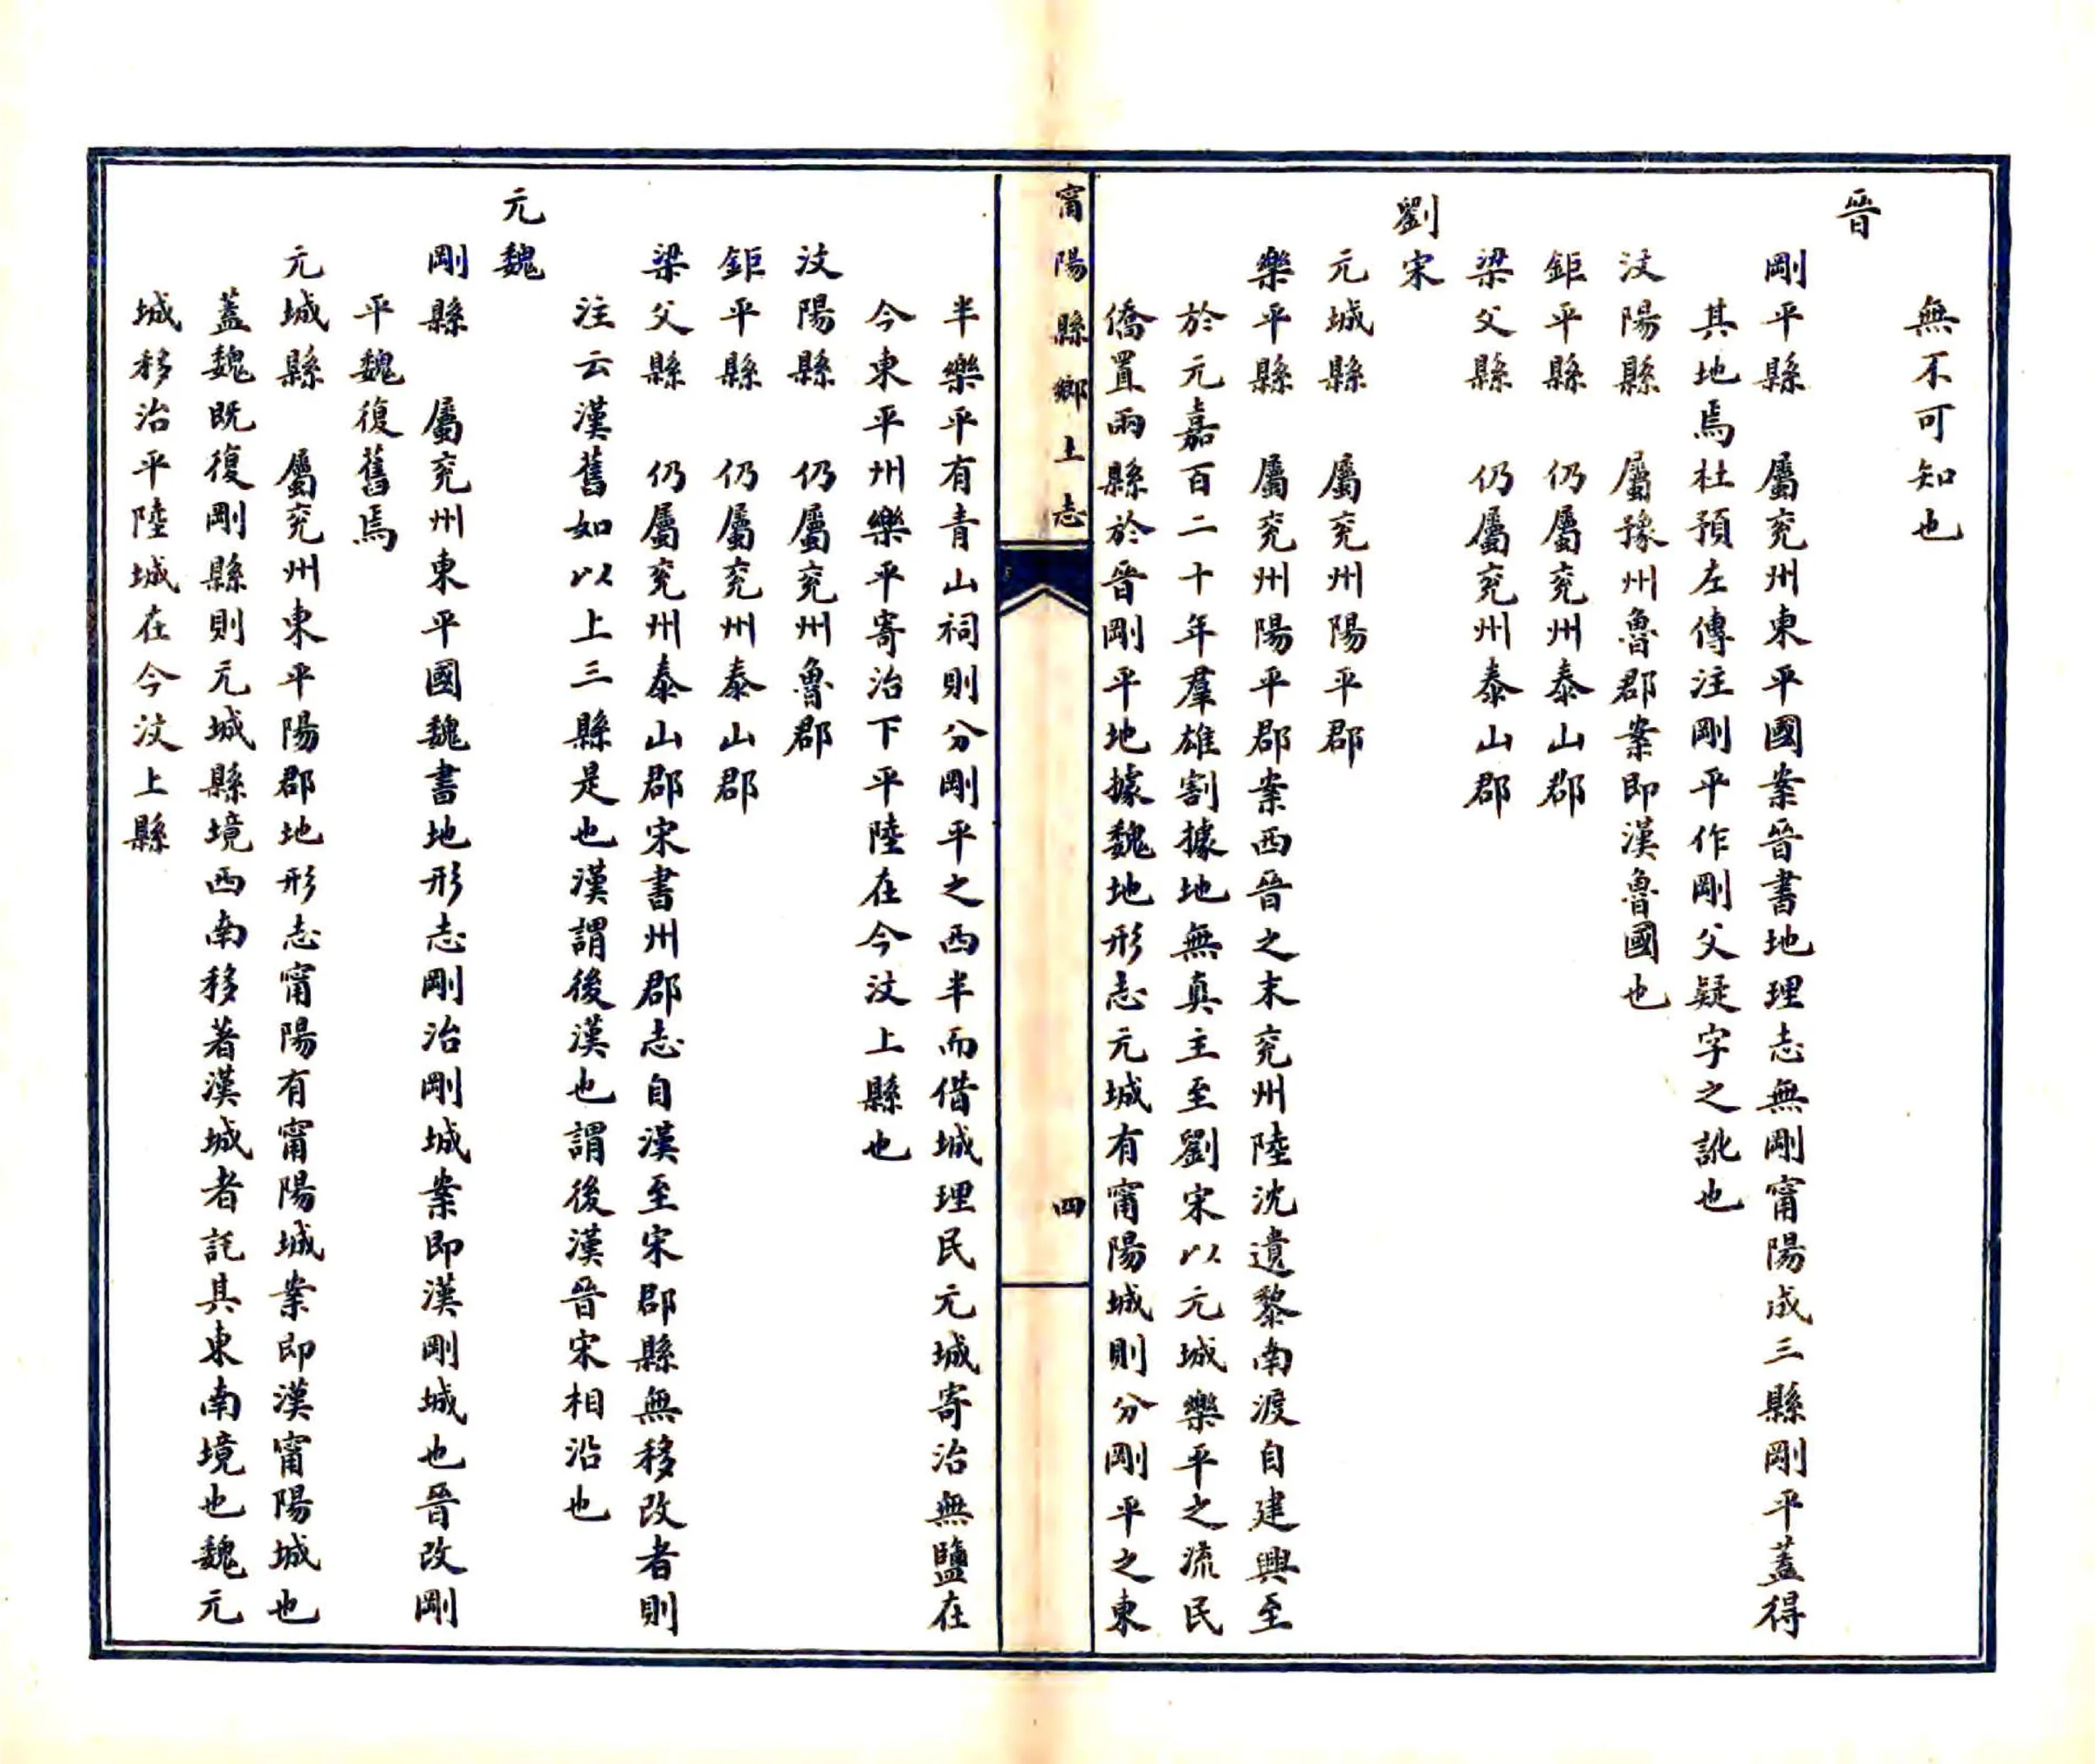 無不可知也
晉
剛平縣　屬兖州東平國案晉書地理志無剛甯陽成三縣剛平蓋得
其地焉杜預左傳注剛平作剛父疑字之訛也
汶陽縣　屬豫州魯郡案即漢魯國也
鉅平縣　仍屬兖州泰山郡
梁父縣　仍屬兖州泰山郡
劉宋
元城縣　屬兖州陽平郡
樂平縣　屬兖州陽平郡案西晉之末兖州陸沈遺黎南渡自建興至
於元嘉百二十年羣雄割據地無真主至劉宋以元城樂平之流民
僑置兩縣於晉剛平地據魏地形志元城有甯陽城則分剛平之東
甯陽縣鄉土志
四
半樂平有青山祠則分剛平之西半而借城理民元城寄治無鹽在
今東平州樂平寄治下平陸在今汶上縣也
汶陽縣　仍屬兖州魯郡
鉅平縣　仍屬兖州泰山郡
梁父縣　仍屬兖州泰山郡宋書州郡志自漢至宋郡縣無移改者則
注云漢舊如以上三縣是也漢謂後漢也謂後漢晉宋相沿也
元魏
剛縣　屬兖州東平國魏書地形志剛治剛城案即漢剛城也晉改剛
平魏復舊焉
元城縣　屬兖州東平陽郡地形志甯陽有甯陽城案即漢甯陽城也
蓋魏既復剛縣則元城縣境西南移著漢城者託其東南境也魏元
城移治平陸城在今汶上縣